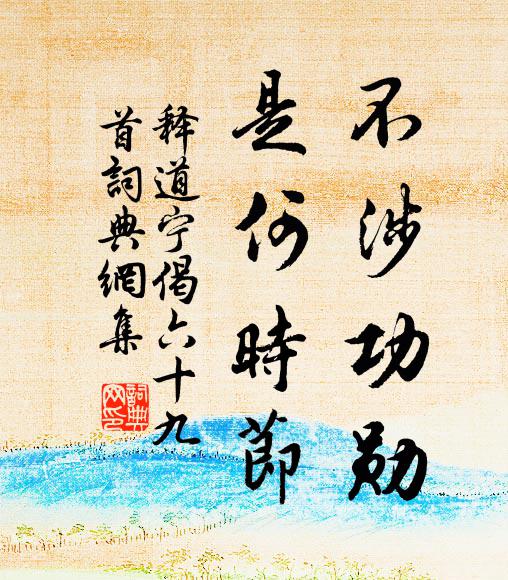 不涉功勋
是何時節
释道宁偈六十九
首詞典網集
詞典
网印